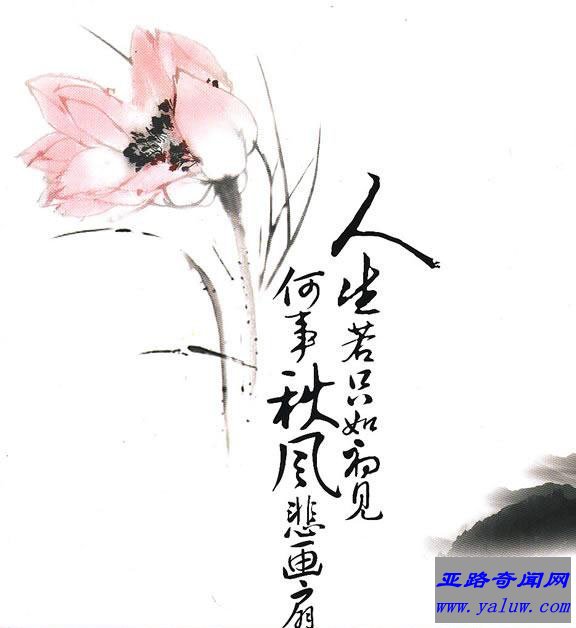 人生若只如初见
何事秋风悲画扇
亚路奇闻网
www.yaluw.com